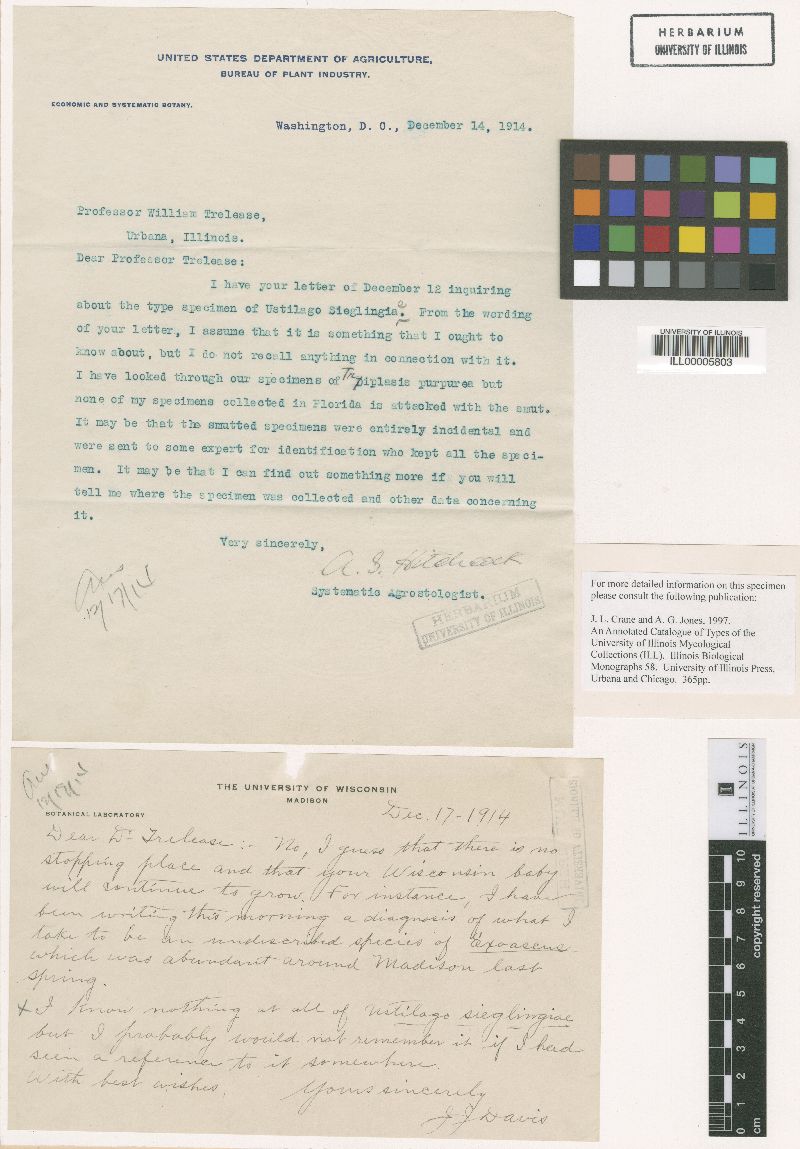 HERBARIUM
UNIVERSITY OF ILLINOIS
UNITED STATES DEPARTMENT OF AGRICULTURE,
BUREAU OF PLANT INDUSTRY.
ECONOMIC AND SYSTEMATIC BOTANY.
Washington, D. C., December 14, 1914.
Professor William Trelease,
Urbana, Illinois.
Dear Professor Trelease:
I have your letter of December 12 inquiring
about the type specimen of Ustilago Sieglingiae. From the wording
of your letter, I assume that it is something that I ought to
know about, but I do not recall anything in connection with it.
I have looked through our specimens of Triplasis purpurea but
none of my specimens collected in Florida is attacked with the smut.
It may be that the smutted specimens were entirely incidental and
were sent to some expert for identification who kept all the speci-
men. It may be that I can find out something more if you will
tell me where the specimen was collected and other data concerning
it.
Very sincerely,
A. S. Hitchcock
Systematic Agrostologist.
HERBARIUM
UNIVERSITY OF ILLINOIS
Ans
12/17/14
UNIVERSITY OF ILLINOIS
ILL00005803
For more detailed information on this specimen
please consult the following publication:
J. L. Crane and A. G. Jones, 1997.
An Annotated Catalogue of Types of the
University of Illinois Mycological
Collections (ILL). Illinois Biological
Monographs 58. University of Illinois Press,
Urbana and Chicago. 365pp.
Ans
12/19/14
THE UNIVERSITY OF WISCONSIN
MADISON
BOTANICAL LABORATORY
Dec. 17-1914
Dear Dr Trelease:- No, I guess that there is no
stopping place and that your Wisconsin baby
will continue to grow. For instance, I have
been writing this morning a diagnosis of what I
take to be an undescribed species of Exoascus
which was abundant around Madison last
spring.
x I know nothing at all of Ustilago sieglingiae
but I probably would not remember it if I had
seen a reference to it somewhere.
With best wishes.
Yours sincerely
J J Davis
UNIVERSITY OF ILLINOIS
ILLINOIS
copyright reserved
0 1 2 3 4 5 6 7 8 9 10
cm